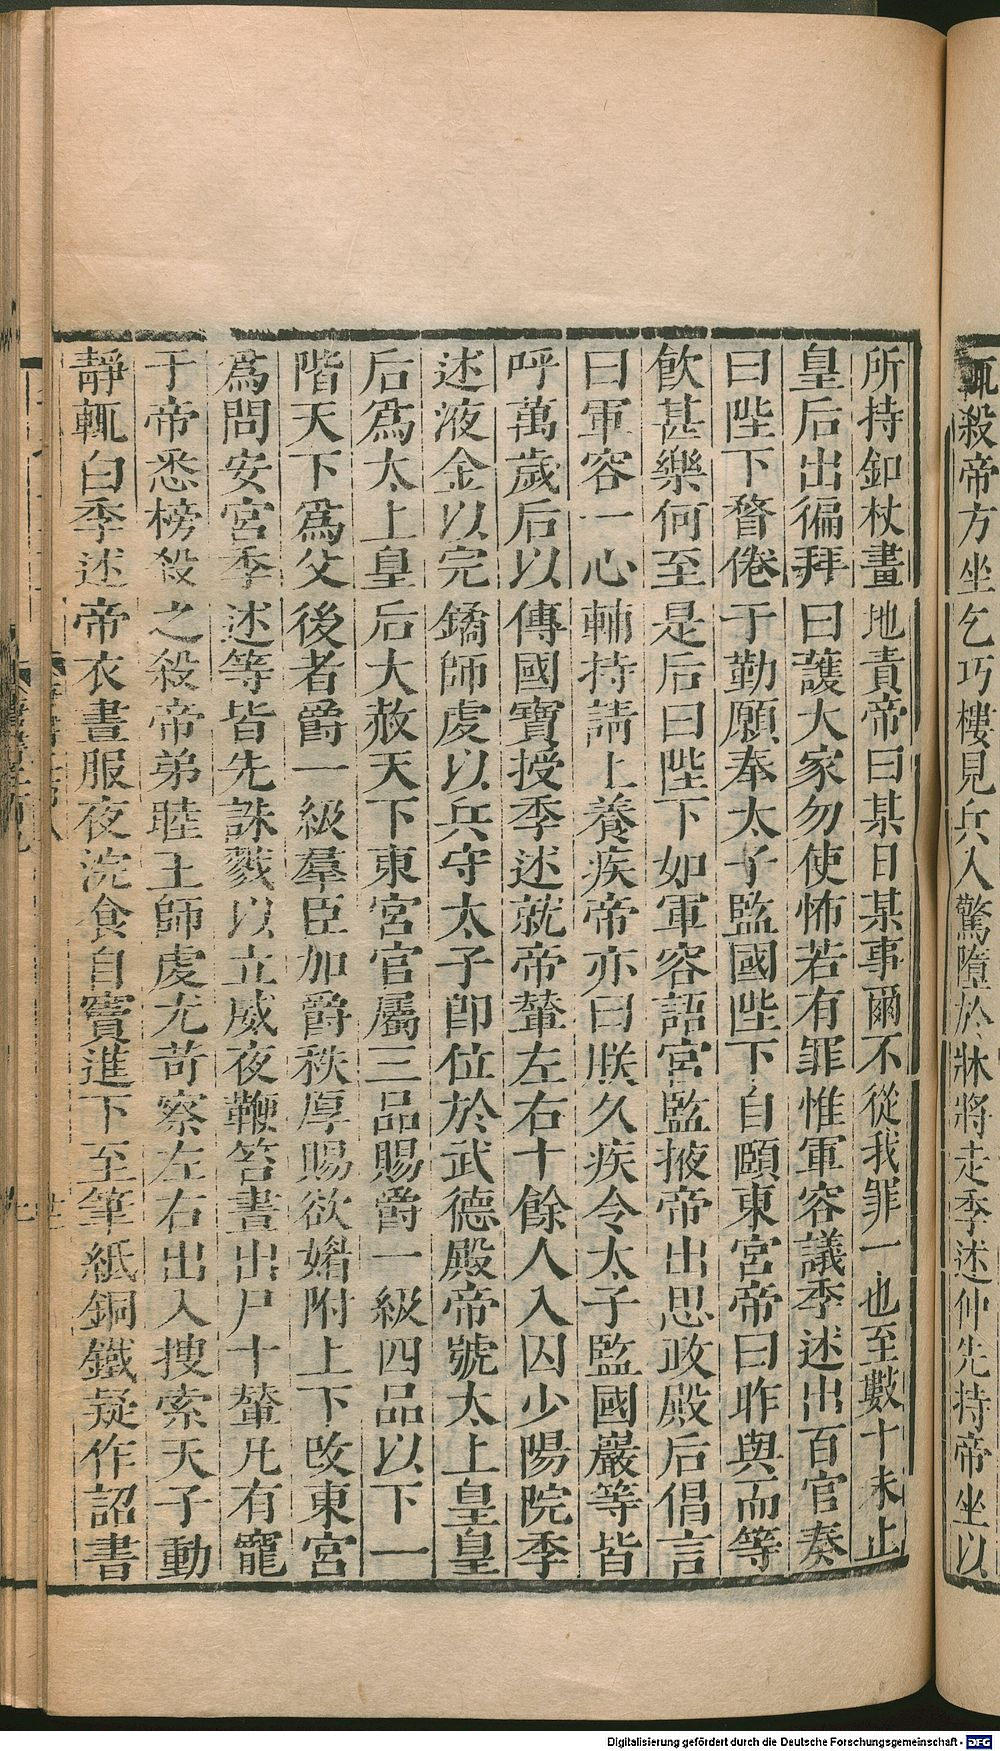 輒殺帝方坐乞巧樓見兵入驚墮於牀將走季述仲先持帝坐以
所持釦杖畫地責帝曰某日某事爾不從我罪一也至數十未止
皇后出徧拜曰護大家勿使怖若有罪惟軍容議季述出百官奏
曰陛下瞀倦于勤願奉太子監國陛下自頤東宮帝曰昨與而等
飲甚樂何至是后曰陛下如軍容語宮監掖帝出思政殿后倡言
曰軍容一心輔持請上養疾帝亦曰朕久疾令太子監國巖等皆
呼萬歲后以傳國寶授季述就帝輦左右十餘人入囚少陽院季
述液金以完鐍師虔以兵守太子卽位於武德殿帝號太上皇皇
后爲太上皇后大赦天下東宮官屬三品賜爵一級四品以下一
階天下爲父後者爵一級羣臣加爵秩厚賜欲媚附上下改東宮
爲問安宮季述等皆先誅戮以立威夜鞭笞晝出尸十輦凡有寵
于帝悉榜殺之殺帝弟睦王師虔尤苛察左右出入搜索天子動
靜輒白季述帝衣晝服夜浣食自竇進下至筆紙銅鐵疑作詔書
Digitalisierung gefördert durch die Deutsche Forschungsgemeinschaft - DFG